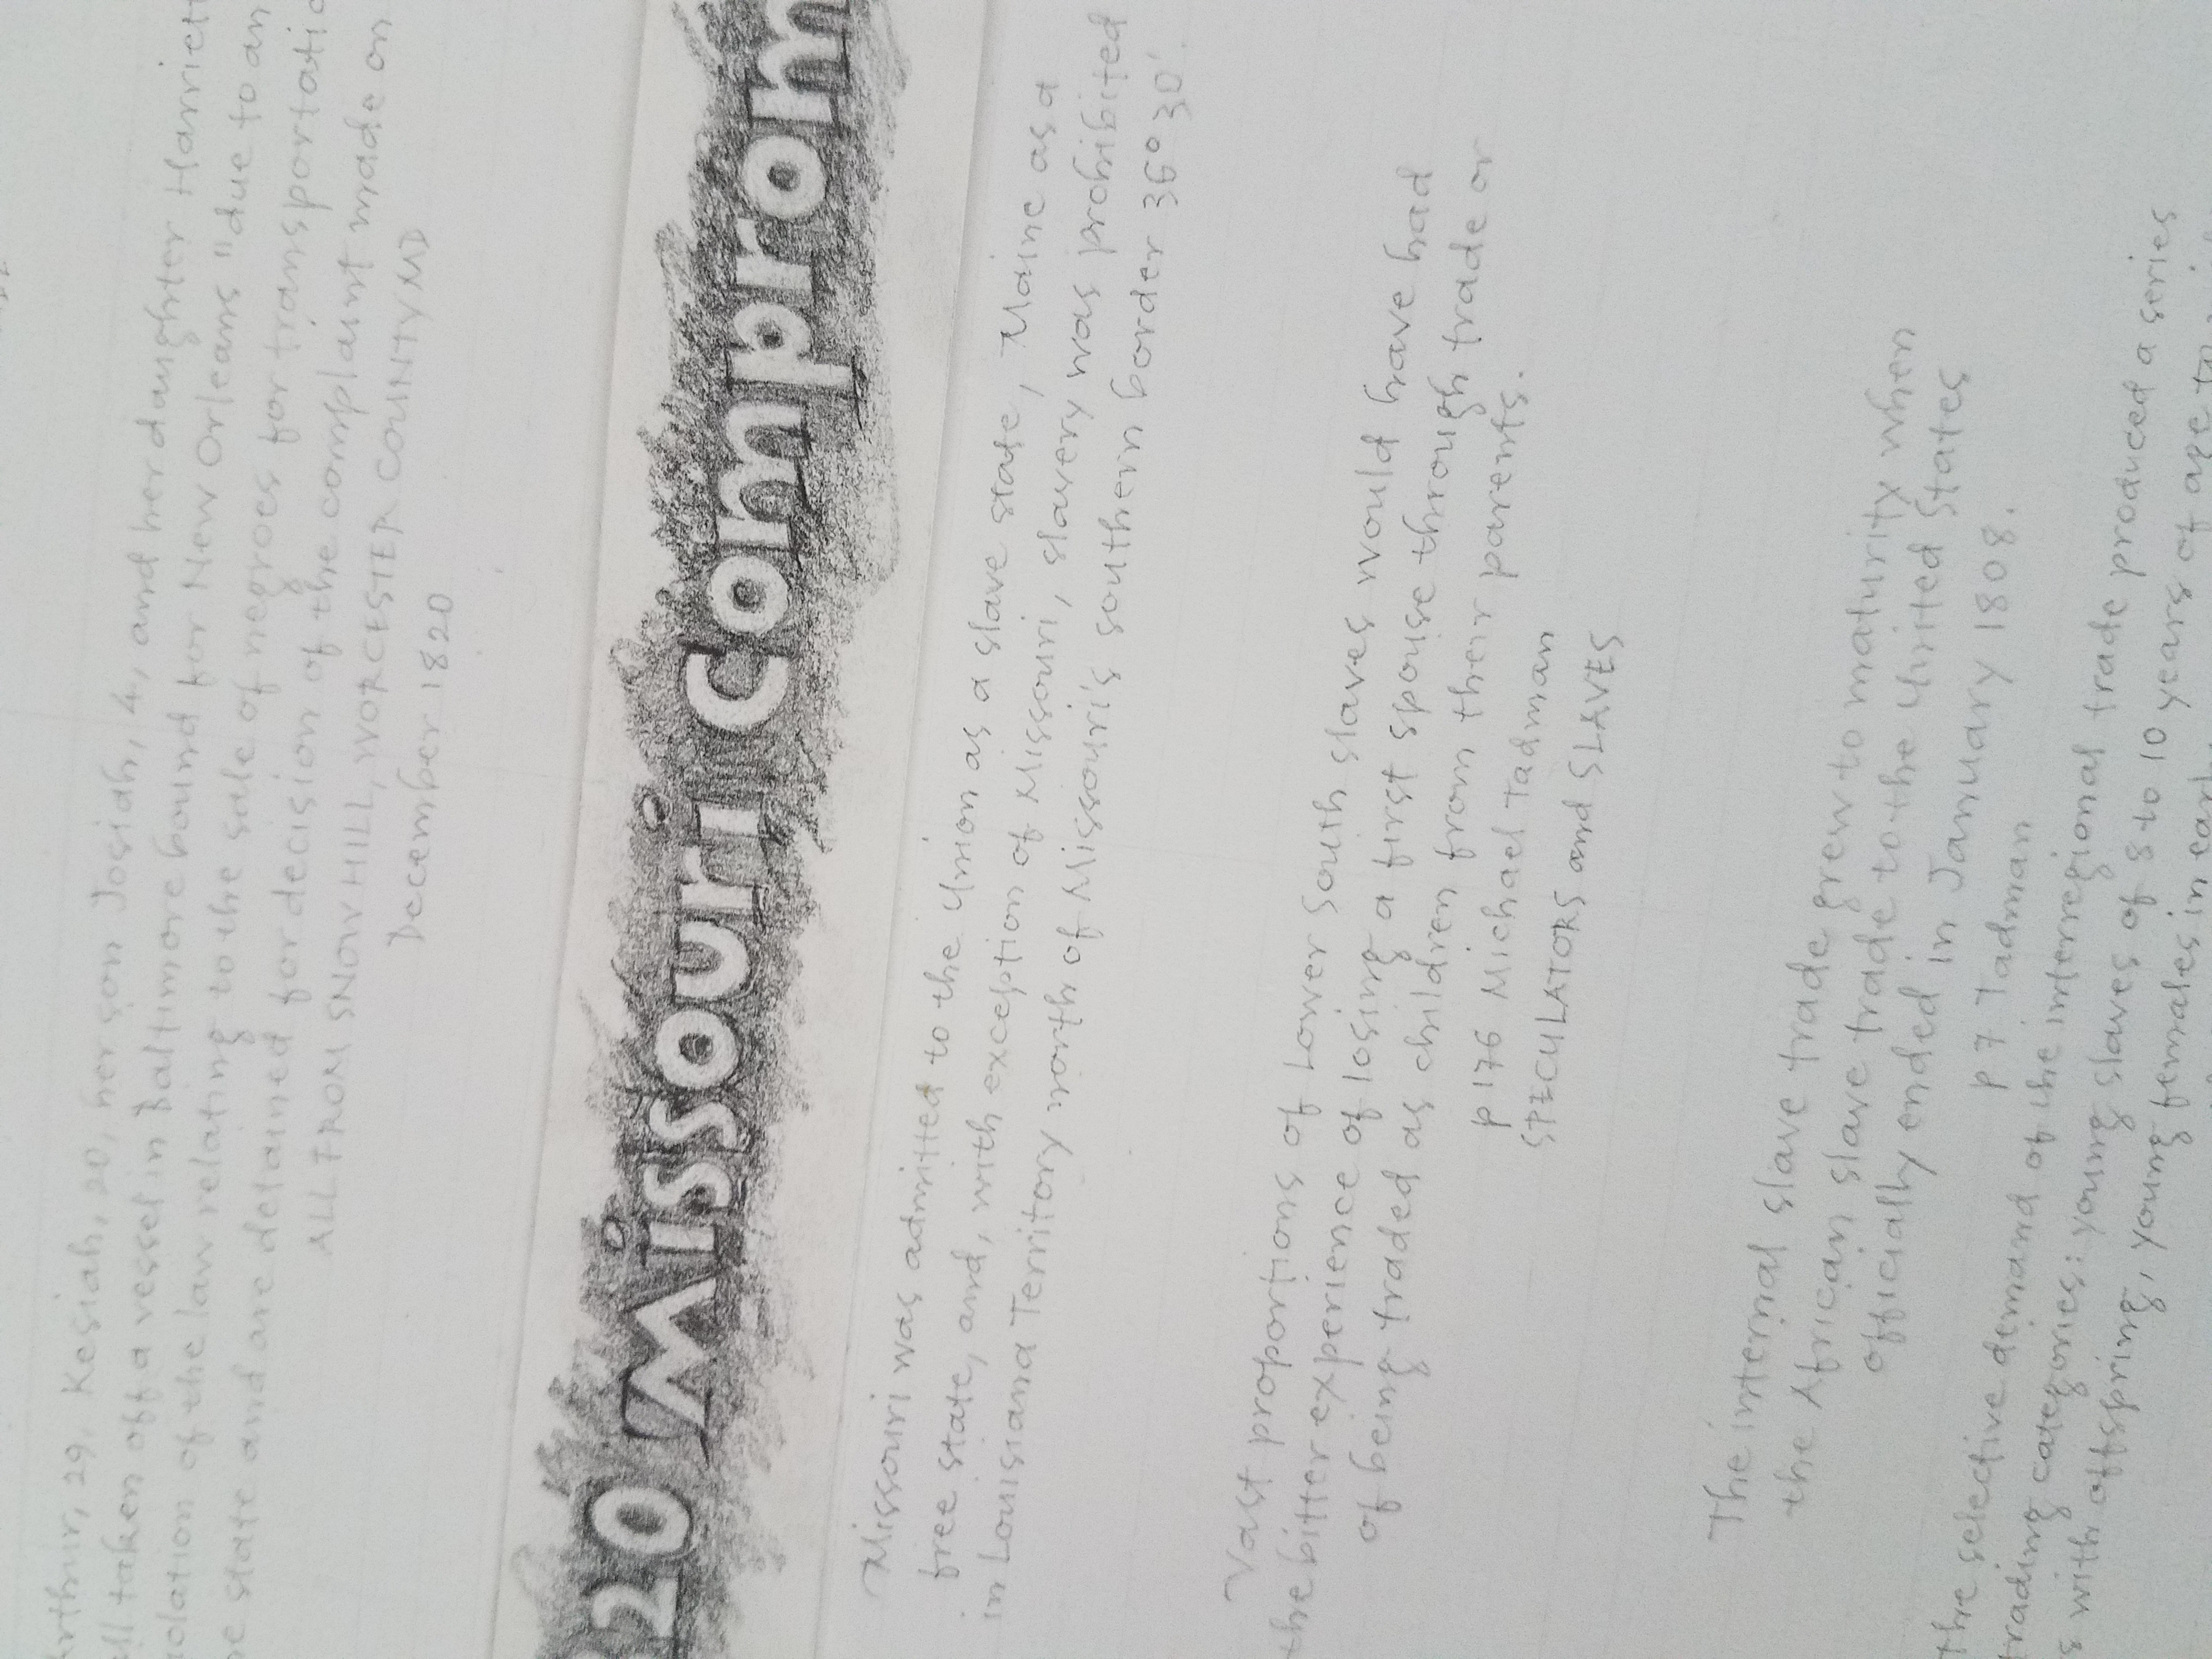 Arthur, 29, Kesiah, 20, her son Josiah, 4, and her daughter Harriett
all taken off a vessel in Baltimore bound for New Orleans "due to an
violation of the law relating to the sale of negroes for transportatio
he state and are detained for decision of the complaint made on
ALL FROM SNOW HILL, WORCESTER COUNTY MD
December 1820
20 Missouri Comprom
Missouri was admitted to the Union as a slave state, Maine as a
free state, and, with exception of Missouri, slavery was prohibited
in Louisiana Territory north of Missouri's southern border 36° 30'.
Vast proportions of Lower South slaves would have had
the bitter experience of losing a first spouse through trade or
of being traded as children from their parents.
p 176 Michael Tadman
SPECULATORS and SLAVES
The internal slave trade grew to maturity when
the African slave trade to the United States
officially ended in January 1808.
p 7 Tadman
the selective demand of the interregional trade produced a series
trading categories: young slaves of 8 to 10 years of age to
s with offspring, young females in earl